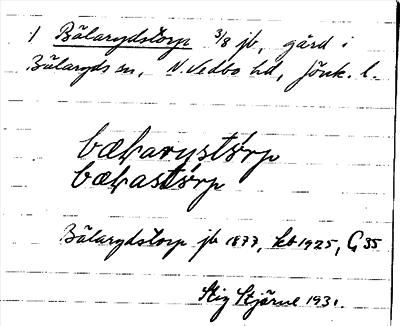 1 Bälarydstorp 3/8 jb, gård i
Bälaryds sn, N. Vedbo hd, Jönk. l.
bæɫarystɷrp
bæɫastɷrp
Bälarydstorp jb 1877, kb 1925, G 35
Stig Stjärne 1931.